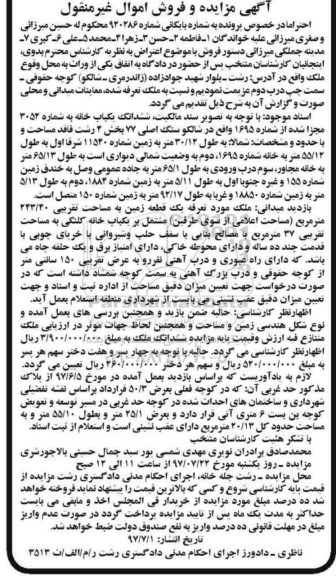 آگهی مزایده و فروش اموال غیرمنقول
احتراما در خصوص پرونده به شماره بایگانی شماره ۹۲۰۲۸۶ محکوم له حسین میرزائی
و صغری میرزائی علیه خواندگان ۱-فاطمه ۲-حسن ۳-زهرا ۴-محمد ۵-علی ۶-کبری ۷-
مدینه جملگی میرزائی دستور فروش با موضوع اعتراض به نظر به کارشناس محترم بدوی،
اینجانبان کارشناسان منتخب پس از حضور در دادگاه به اتفاق یکی از وراث به محل وقوع
ملک واقع در آدرس: رشت - بلوار شهید جوادزاده (ژاندرمری - شالکو) کوچه حقوقی -
سمت چپ درب دوم عزیمت نمودیم و نسبت به ملک تعرفه شده، معاینات میدانی و محلی
صورت و گزارش آن به شرح ذیل تقدیم می گردد.
اسناد موجود: با توجه به تصویر سند مالکیت، ششدانگ یکباب خانه به شماره ۳۰۵۲
مجزا شده از شماره ۱۶۹۵ واقع در شالکو سنگ اصلی ۷۷ بخش ۴ رشت فاقد مساحت و
با حدود و مشخصات: شمالا: به طول ۳۰/۱۲ متر به زمین شماره ۱۱۵۲۰ شرقا اول به طول
۵۵/۱۲ متر به خانه شماره ۱۶۹۵، دوم به وضعیت شمالی دیواری است به طول ۶۵/۱۳ متر
به خانه مجاور، سوم درب ورودی به طول ۶۵/۱ متر به جاده عمومی وصل به خندق زمین
شماره ۱۵۵ و غیره جنوبا اول به طول ۵/۱۱ متر به زمین شماره ۱۸۸۴، دوم به طول ۵/۱۳
متر به زمین شماره ۱۸۸۵۰ و غربا به طول ۹۲/۱۷ متر به زمین شماره ۱۵۰ متصل است.
بازدید میدانی: ملک مورد تعرفه یک قطعه زمین به مساحت تقریبی ۲۴۳/۴۰
مترمربع (مساحت اعلامی از سوی طرفین) مشتمل بر یکباب خانه کلنگی به مساحت
تقریبی ۳۷ مترمربع با مصالح بنایی با سقف حلب وشیروانی با خرپای چوبی با
قدمت چند ده ساله و دارای محوطه خاکی، دارای امتیاز برق و یک حلقه چاه می
باشد. که دارای راه عبوری و درب آهنی نفررو به عرض تقریبی ۱۵۰ سانتی متر
از کوچه حقوقی و درب بزرگ آهنی به سمت کوچه شمشاد داشته است که در
صورت درخواست جهت تعیین میزان دقیق مساحت از اداره ثبت و اسناد و جهت
تعیین میزان دقیق عقب نشینی می بایست از شهرداری منطقه استعلام بعمل آید.
اظهارنظر کارشناسی: حالیه ضمن بازید و همچنین بررسی های بعمل آمده و
نوع شکل هندسی زمین و مساحت و همچنین لحاظ جهات موثر در ارزیابی ملک
متنازع فیه ارزش وقیمت پایه مزایده ششدانگ ملک به مبلغ ۳/۹۰۰/۰۰۰/۰۰۰ ریال
اظهارنظر کارشناسی می گردد. حالیه با توجه به چهار پسر و هفت دختر سهم هر پسر
به مبلغ ۵۲۰/۰۰۰/۰۰۰ ریال و سهم هر دختر ۲۶۰/۰۰۰/۰۰۰ ریال تعیین می گردد.
لازم به یادآوریست که براساس بازدید بعمل آمده در مورخ ۹۷/۶/۵ از پلاک
مذکور حد غربی آن: که در کوچه فعلی بعرض ۵/۳ قرارداد براساس نقشه تفضیلی
شهرداری و ساختمان های احداث شده در کوچه حد غربی در مسیر توسعه و تعویض
کوچه بن بست ۶ متری آتی قرار دارد و بعرض ۲۵/۱ متر و بطول ۵۵/۱۰ متر و به
مساحت حدود کل ۲۰/۱۳ مترمربع دارای عقب نشینی است و استعلام از ثبت اسناد.
با تشکر هئیت کارشناسان منتخب
محمدصادق برادران نویری مهدی شمسی پور سید جمال حسینی بالاجورشری
مزایده - روز یکشنبه مورخ ۹۷/۰۷/۲۲ از ساعت ۱۱ الی ۱۲ صبح
محل مزایده - رشت جله خانه، اجرای احکام مدنی دادگستری رشت مزایده از
قیمت پایه کارشناسی شروع و کسی که بالاترین قیمت را پیشنهاد نماید فروخته خواهد
شد ده درصد مبلغ مورد مزایده از خریدار فی المجلس اخذ و مابقی می بایست
حداکثر به مدت یک ماه پس از تایید مزایده پرداخت گردد در صورت عدم واریز
مبلغ در مهلت قانونی ده درصد واریز به نفع صندوق دولت ضبط خواهد شد.
تاریخ انتشار: ۹۷/۷/۱
ناظری - دادورز اجرای احکام مدنی دادگستری رشت /م/الف/ث ۳۵۱۳